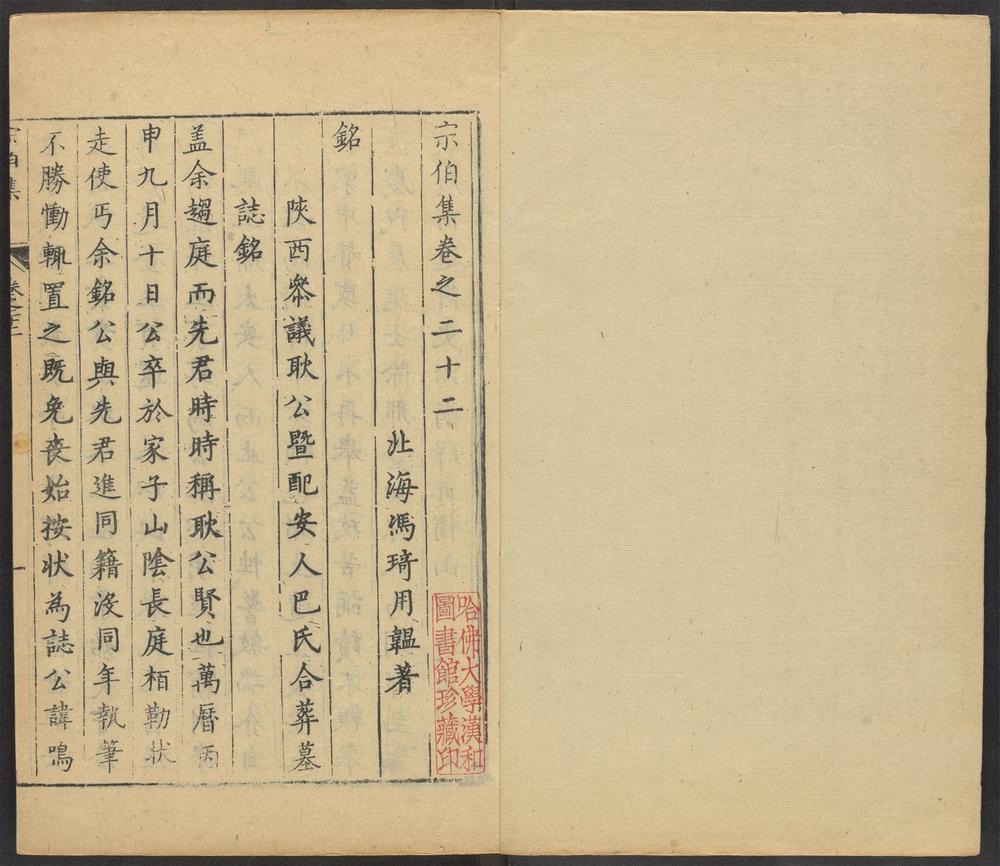 宗伯集卷之二十二
北海馮琦用韞著
銘
陝西叅議耿公暨配安人巴氏合葬墓
誌銘
盖余趨庭而先君時時稱耿公賢也萬曆丙
申九月十日公卒於家子山陰長庭栢勒狀
走使丐余銘公與先君進同籍沒同年執筆
不勝慟輙置之既免喪始按状為誌公諱鳴
宗伯集
一
哈佛大學漢和
圖書館珍藏印